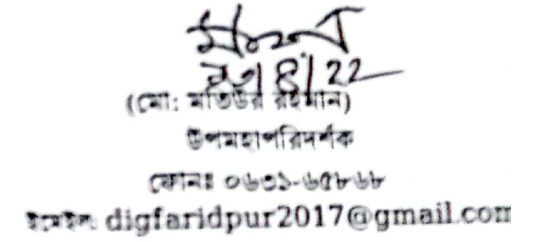 ২৭/৪/22
(মো: মতিউর রহমান)
উপমহাপরিদর্শক
ফোনঃ ০৬৩১-৬৫৮৬৮
ইমেইল: digfaridpur2017@gmail.com